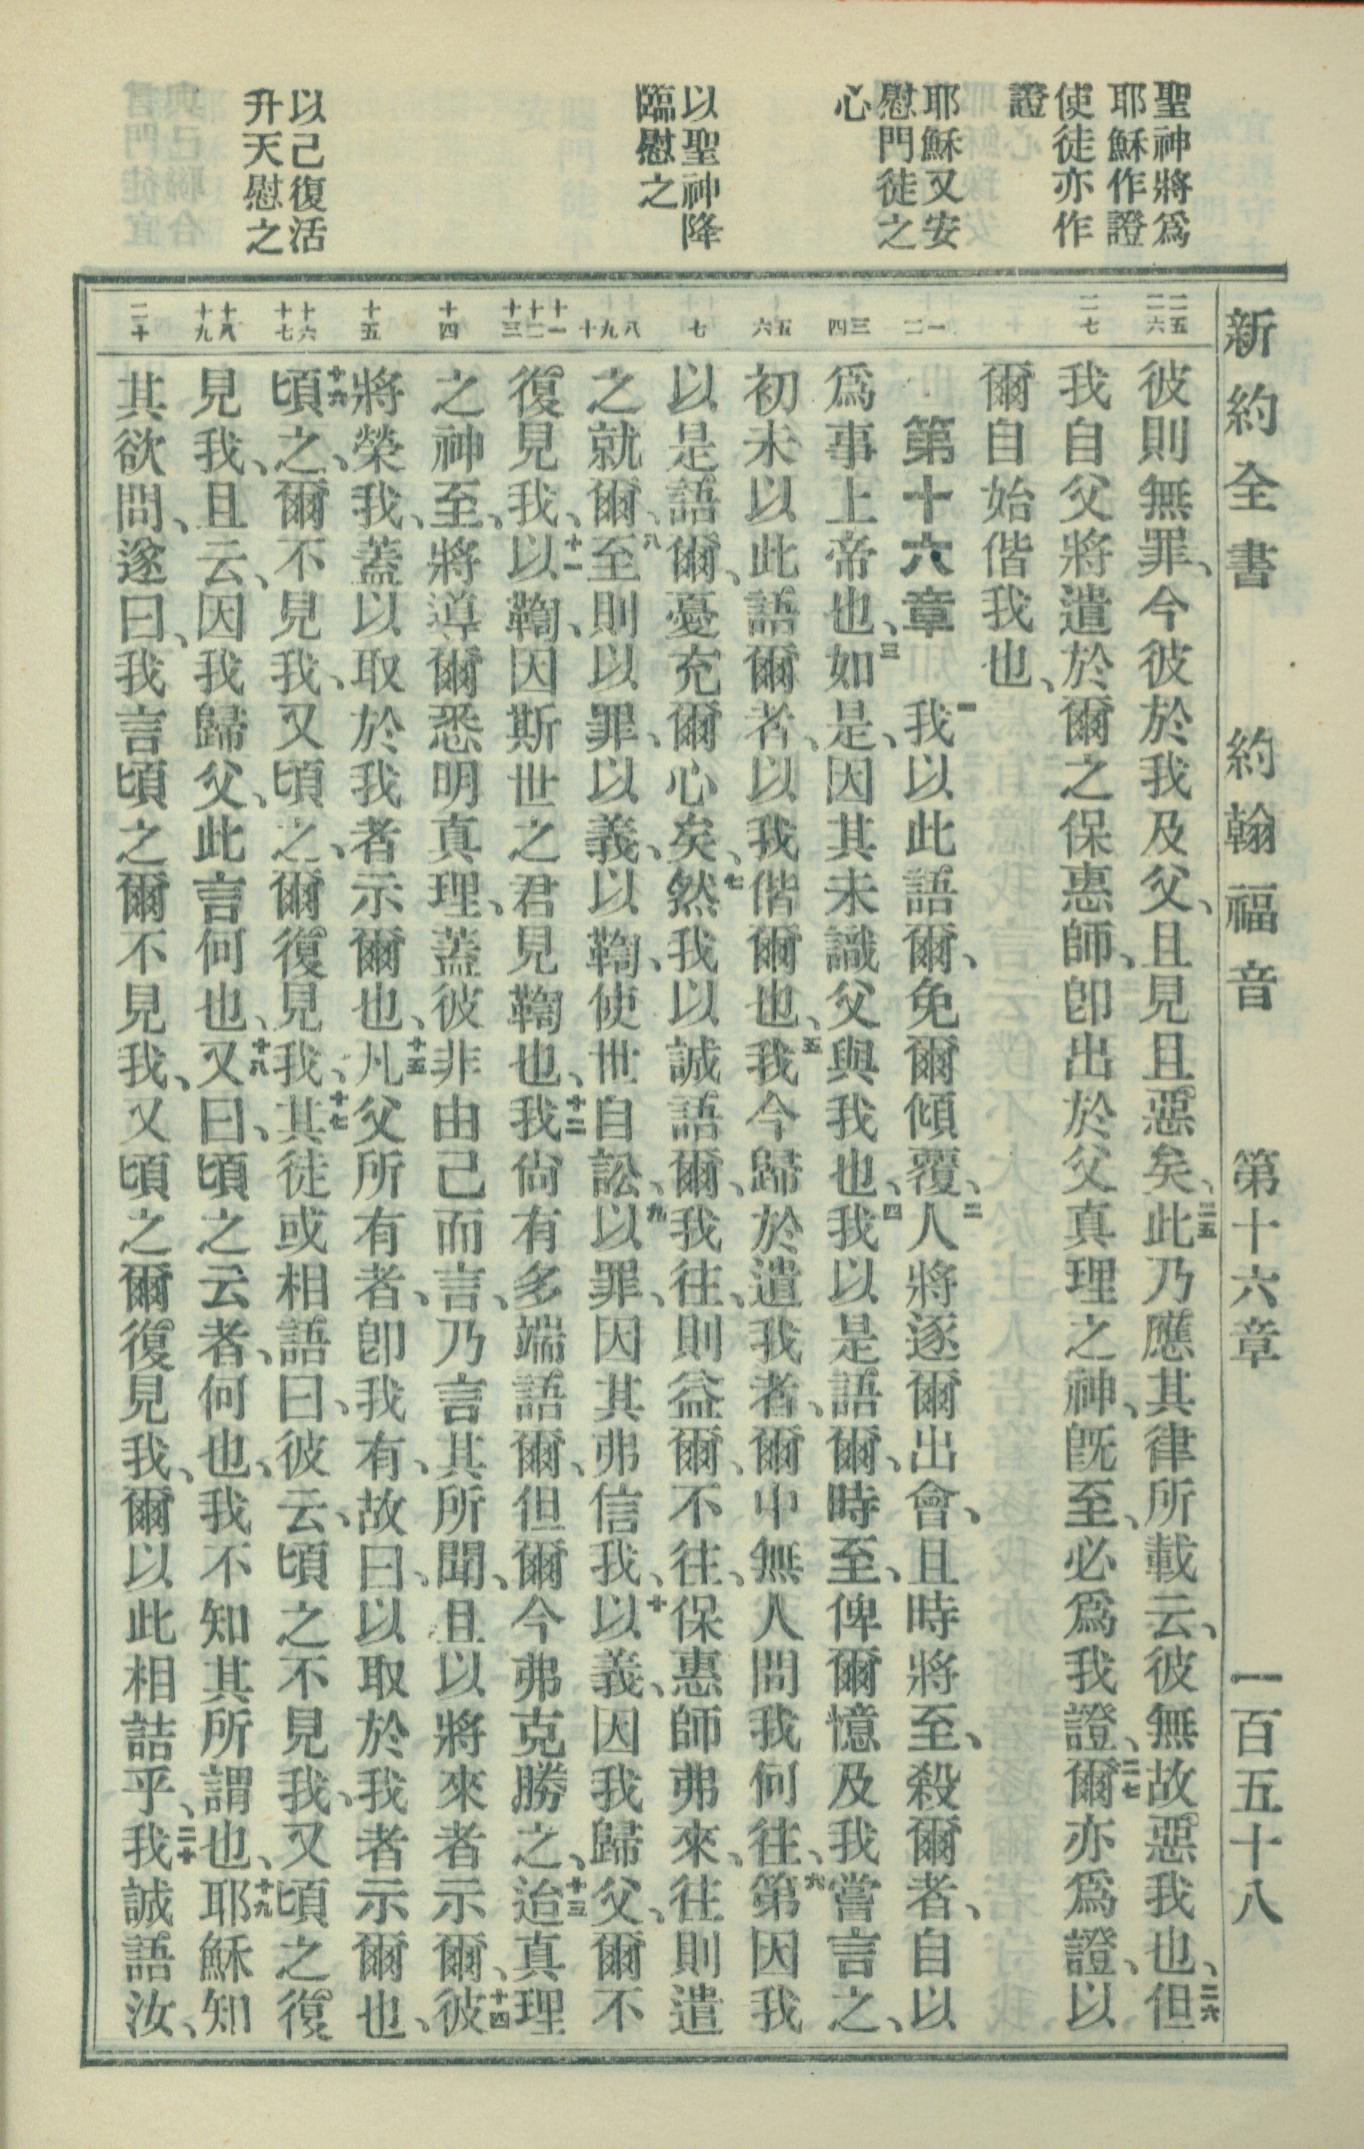 新約全書　約翰福音　第十六章　一百五十八
聖神將爲
耶穌作證
使徒亦作
證
耶穌又安
慰門徒之
心
以聖神降
臨慰之
以己復活
升天慰之
二五 二六
二七
一 二
三 四
五 六
七
八 九 十
十一 十二 十三
十四
十五
十六 十七
十八 十九
二十
彼則無罪、今彼於我及父、且見且惡矣、二五此乃應其律所載云、彼無故惡我也、二六但
我自父將遣於爾之保惠師、卽出於父真理之神、旣至、必爲我證、二七爾亦爲證、以
爾自始偕我也、
第十六章　一我以此語爾、免爾傾覆、二人將逐爾出會、且時將至、殺爾者、自以
爲事上帝也、三如是、因其未識父與我也、四我以是語爾、時至、俾爾憶及我嘗言之、
初未以此語爾者、以我偕爾也、五我今歸於遣我者、爾中無人問我何往、六第因我
以是語爾、憂充爾心矣、七然我以誠語爾、我往、則益爾、不往、保惠師弗來、往則遣
之就爾、八至則以罪、以義、以鞫、使世自訟、九以罪、因其弗信我、十以義、因我歸父、爾不
復見我、十一以鞫、因斯世之君見鞫也、十二我尙有多端語爾、但爾今弗克勝之、十三迨真理
之神至、將導爾悉明真理、蓋彼非由己而言、乃言其所聞、且以將來者示爾、十四彼
將榮我、蓋以取於我者示爾也、十五凡父所有者、卽我有、故曰、以取於我者示爾也、
十六頃之、爾不見我、又頃之、爾復見我、十七其徒或相語曰、彼云、頃之不見我、又頃之復
見我、且云、因我歸父、此言何也、十八又曰、頃之云者、何也、我不知其所謂也、十九耶穌知
其欲問、遂曰、我言頃之爾不見我、又頃之爾復見我、爾以此相詰乎、二十我誠語汝、